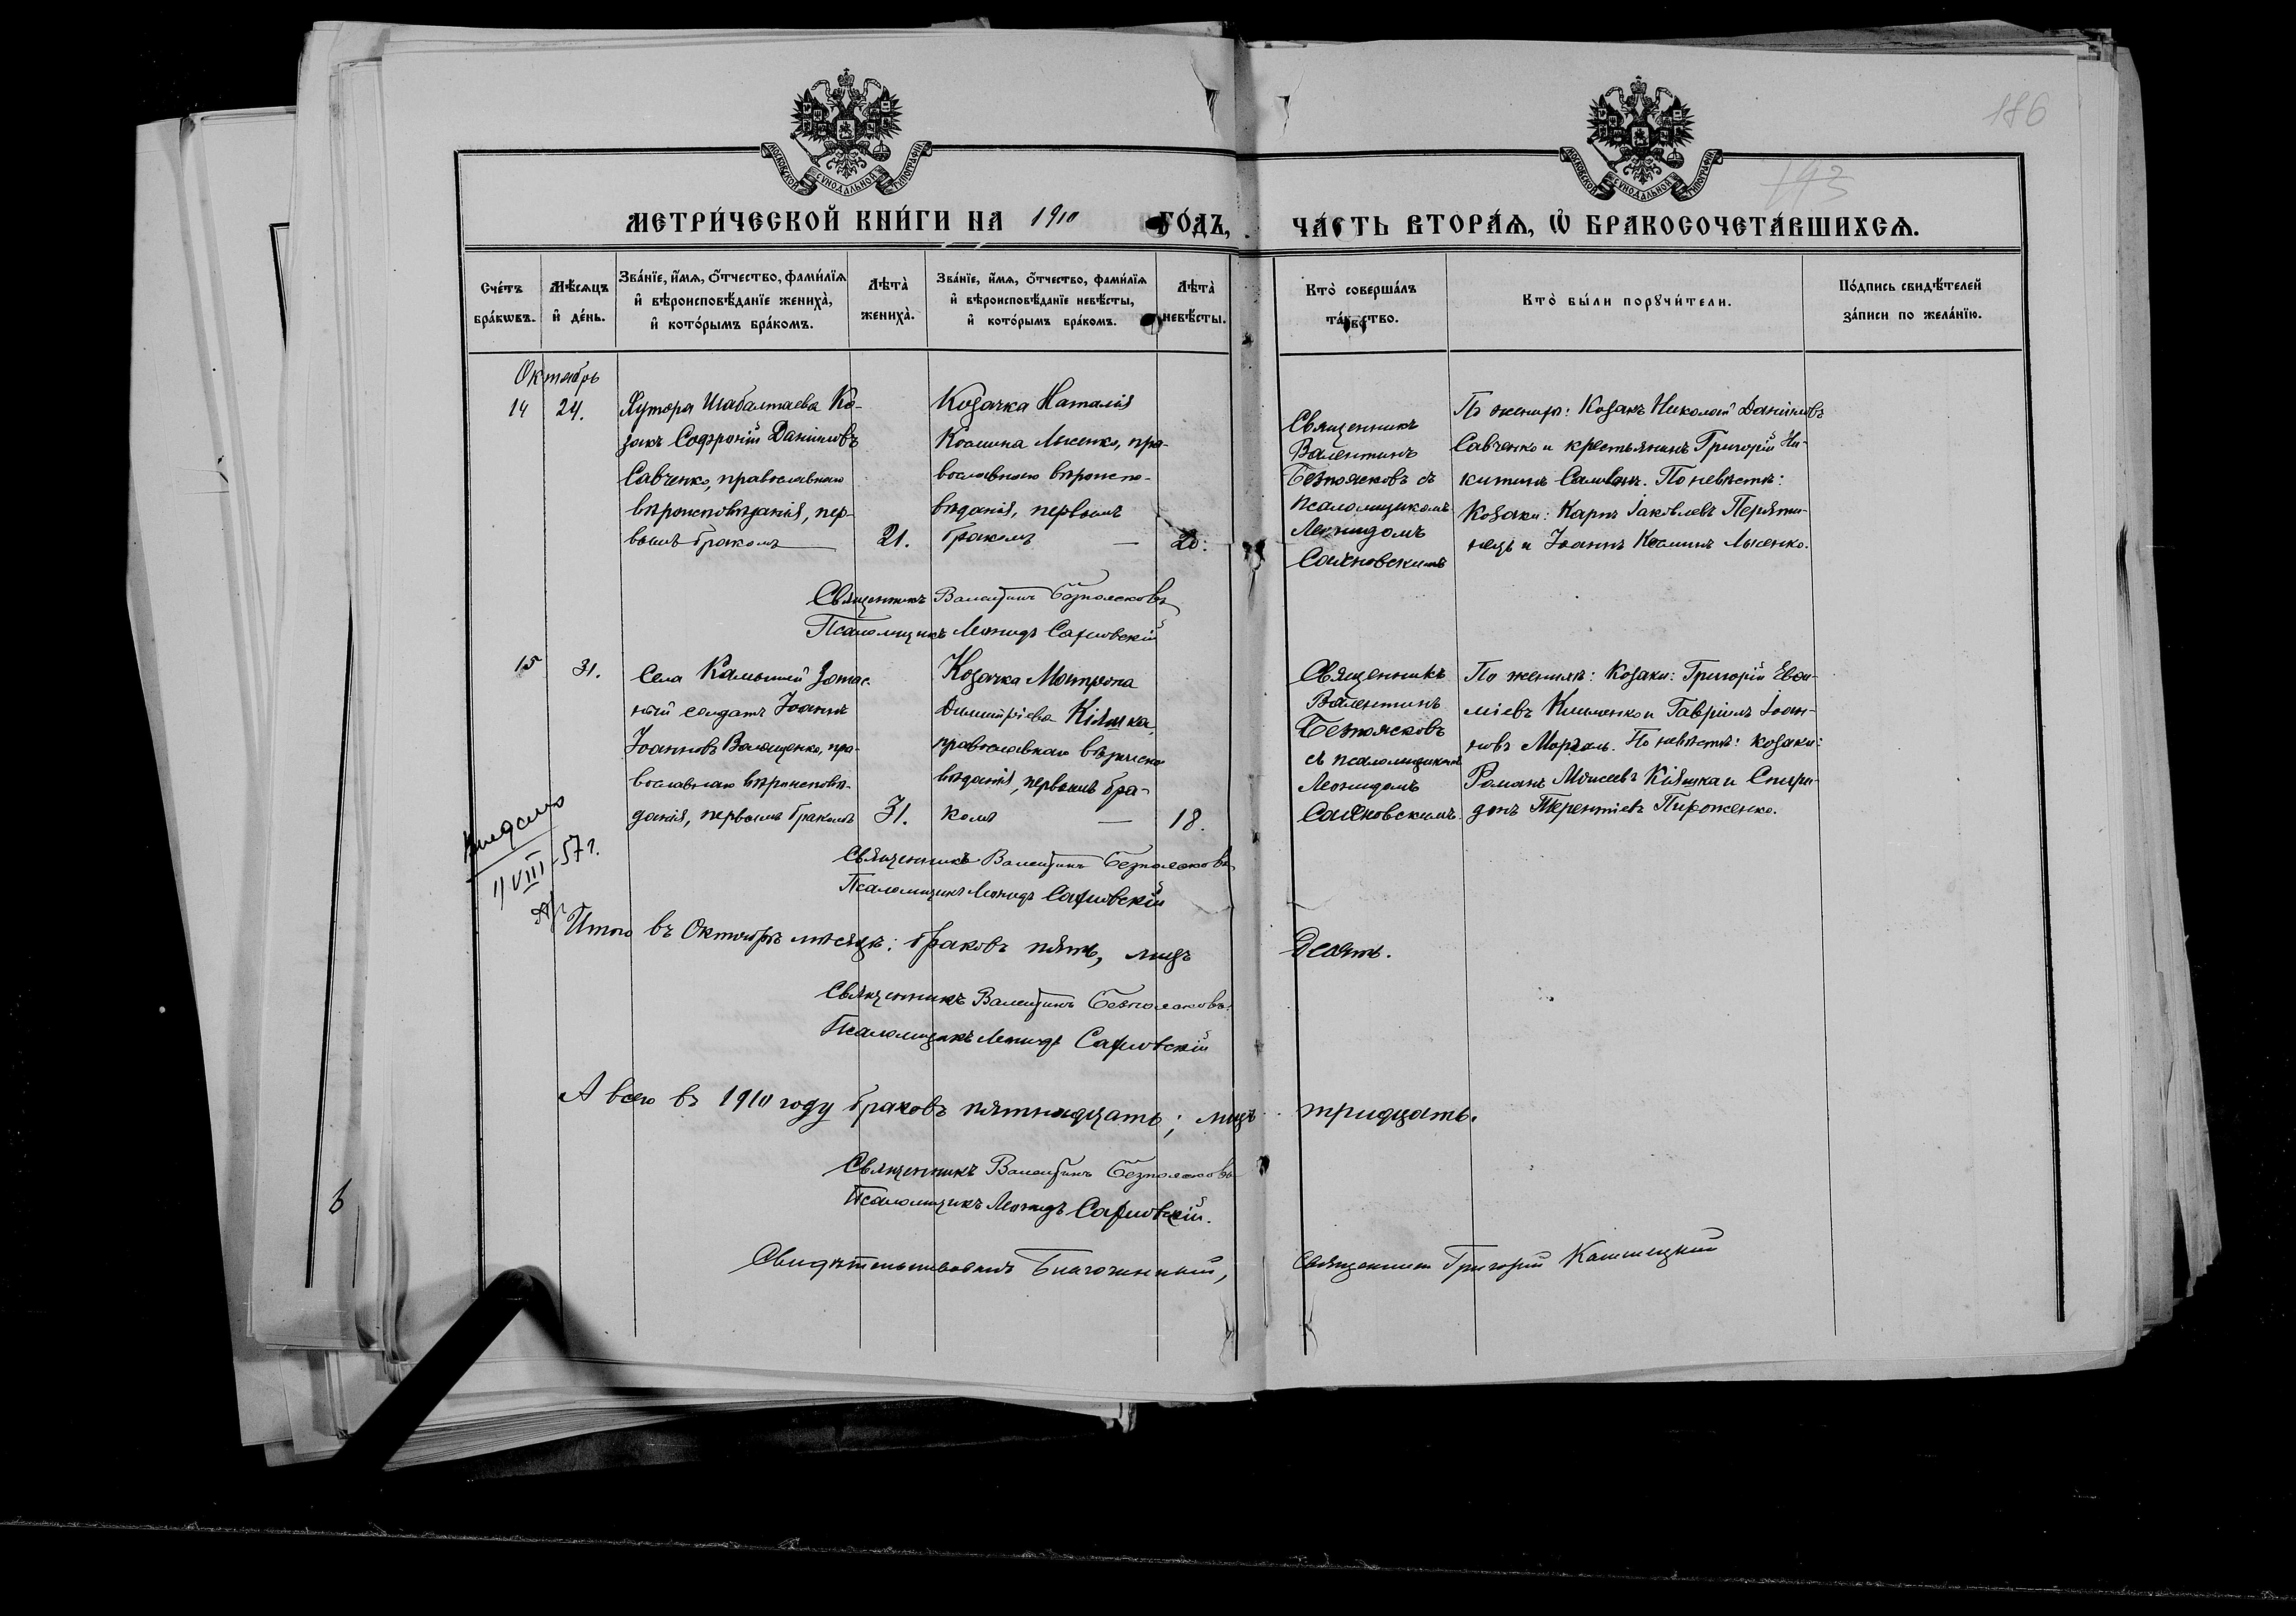 186
193
МОСКОВСКОЙ СѴНОДАЛЬНОЙ ТИПОГРАФІИ
МОСКОВСКОЙ СѴНОДАЛЬНОЙ ТИПОГРАФІИ
МЕТРИ́ЧЕСКОЙ КНИ́ГИ НА 1910 ГО́ДЪ,
ЧА́СТЬ ВТОРА́Ѧ, Ѽ БРАКОСОЧЕТА́ВШИХСѦ.
Сче́тъ бра́кѡвъ.
Мѣ́сѧцъ и҆ де́нь.
Зва́нїе, и҆́мѧ, ѻ҆́тчество, фами́лїѧ
и҆ вѣроисповѣ́данїе жениха̀,
и҆ кото́рымъ бра́комъ.
Лѣта̀ жениха̀.
Зва́нїе, и҆́мѧ, ѻ҆́тчество, фами́лїѧ
и҆ вѣроисповѣ́данїе невѣ́сты,
и҆ кото́рымъ бра́комъ.
Лѣта̀ невѣ́сты.
Кто̀ соверша́лъ
та́инство.
Кто̀ бы́ли порꙋчи́тели.
По́дпись свидѣ́телей
за́писи по жела́нїю.
Октябрь
14
24.
Хутора Шабалтаева Ко-
закъ Софроній Даніиловъ
Савченко, православнаго
вѣроисповѣданія, пер-
вымъ бракомъ
21.
Козачка Наталія
Космина Лысенко, пра-
вославнаго вѣроиспо-
вѣданія, первымъ
бракомъ
20.
Священникъ
Валентинъ
Безпоясковъ съ
псаломщикомъ
Леонидомъ
Сахновскимъ
По женихѣ: Козакъ Николай Даніиловъ
Савченко и крестьянинъ Григорій Ни-
китинъ. По невѣстѣ:
Козаки: Карпъ Іаковлевъ Перяти-
нецъ и Іоаннъ Косминъ Лысенко.
Священникъ Валентинъ Безпоясковъ
Псаломщикъ Леонидъ Сахновскій
15
31.
Села Камышей Запас-
ный солдатъ Іоаннъ
Іоанновъ Волощенко, пра-
вославнаго вѣроисповѣ-
данія, первымъ бракомъ
31.
Козачка Матрона
Димитріева Кіяшка,
православнаго вѣроиспо-
вѣданія, первымъ бра-
комъ
18.
Священникъ
Валентинъ
Безпоясковъ
съ псаломщикомъ
Леонидомъ
Сахновскимъ.
По женихѣ: Козаки: Григорій Евфи-
міевъ Клименко и Гавріилъ Іоан-
новъ. По невѣстѣ: козаки:
Романъ Моисеевъ Кіяшка и Спири-
донъ Терентіевъ Пироженко.
Видано
11 VIII-57 г.
Священникъ Валентинъ Безпоясковъ
Псаломщикъ Леонидъ Сахновскій
Итого въ Октябрѣ мѣсяцѣ: браковъ пять, лицъ десять.
Священникъ Валентинъ Безпоясковъ.
Псаломщикъ Леонидъ Сахновскій
А всего въ 1910 году браковъ пятнадцать; лицъ тридцать.
Священникъ Валентинъ Безпоясковъ
Псаломщикъ Леонидъ Сахновскій.
Свидѣтельствовалъ Благочинный, священникъ Григорій